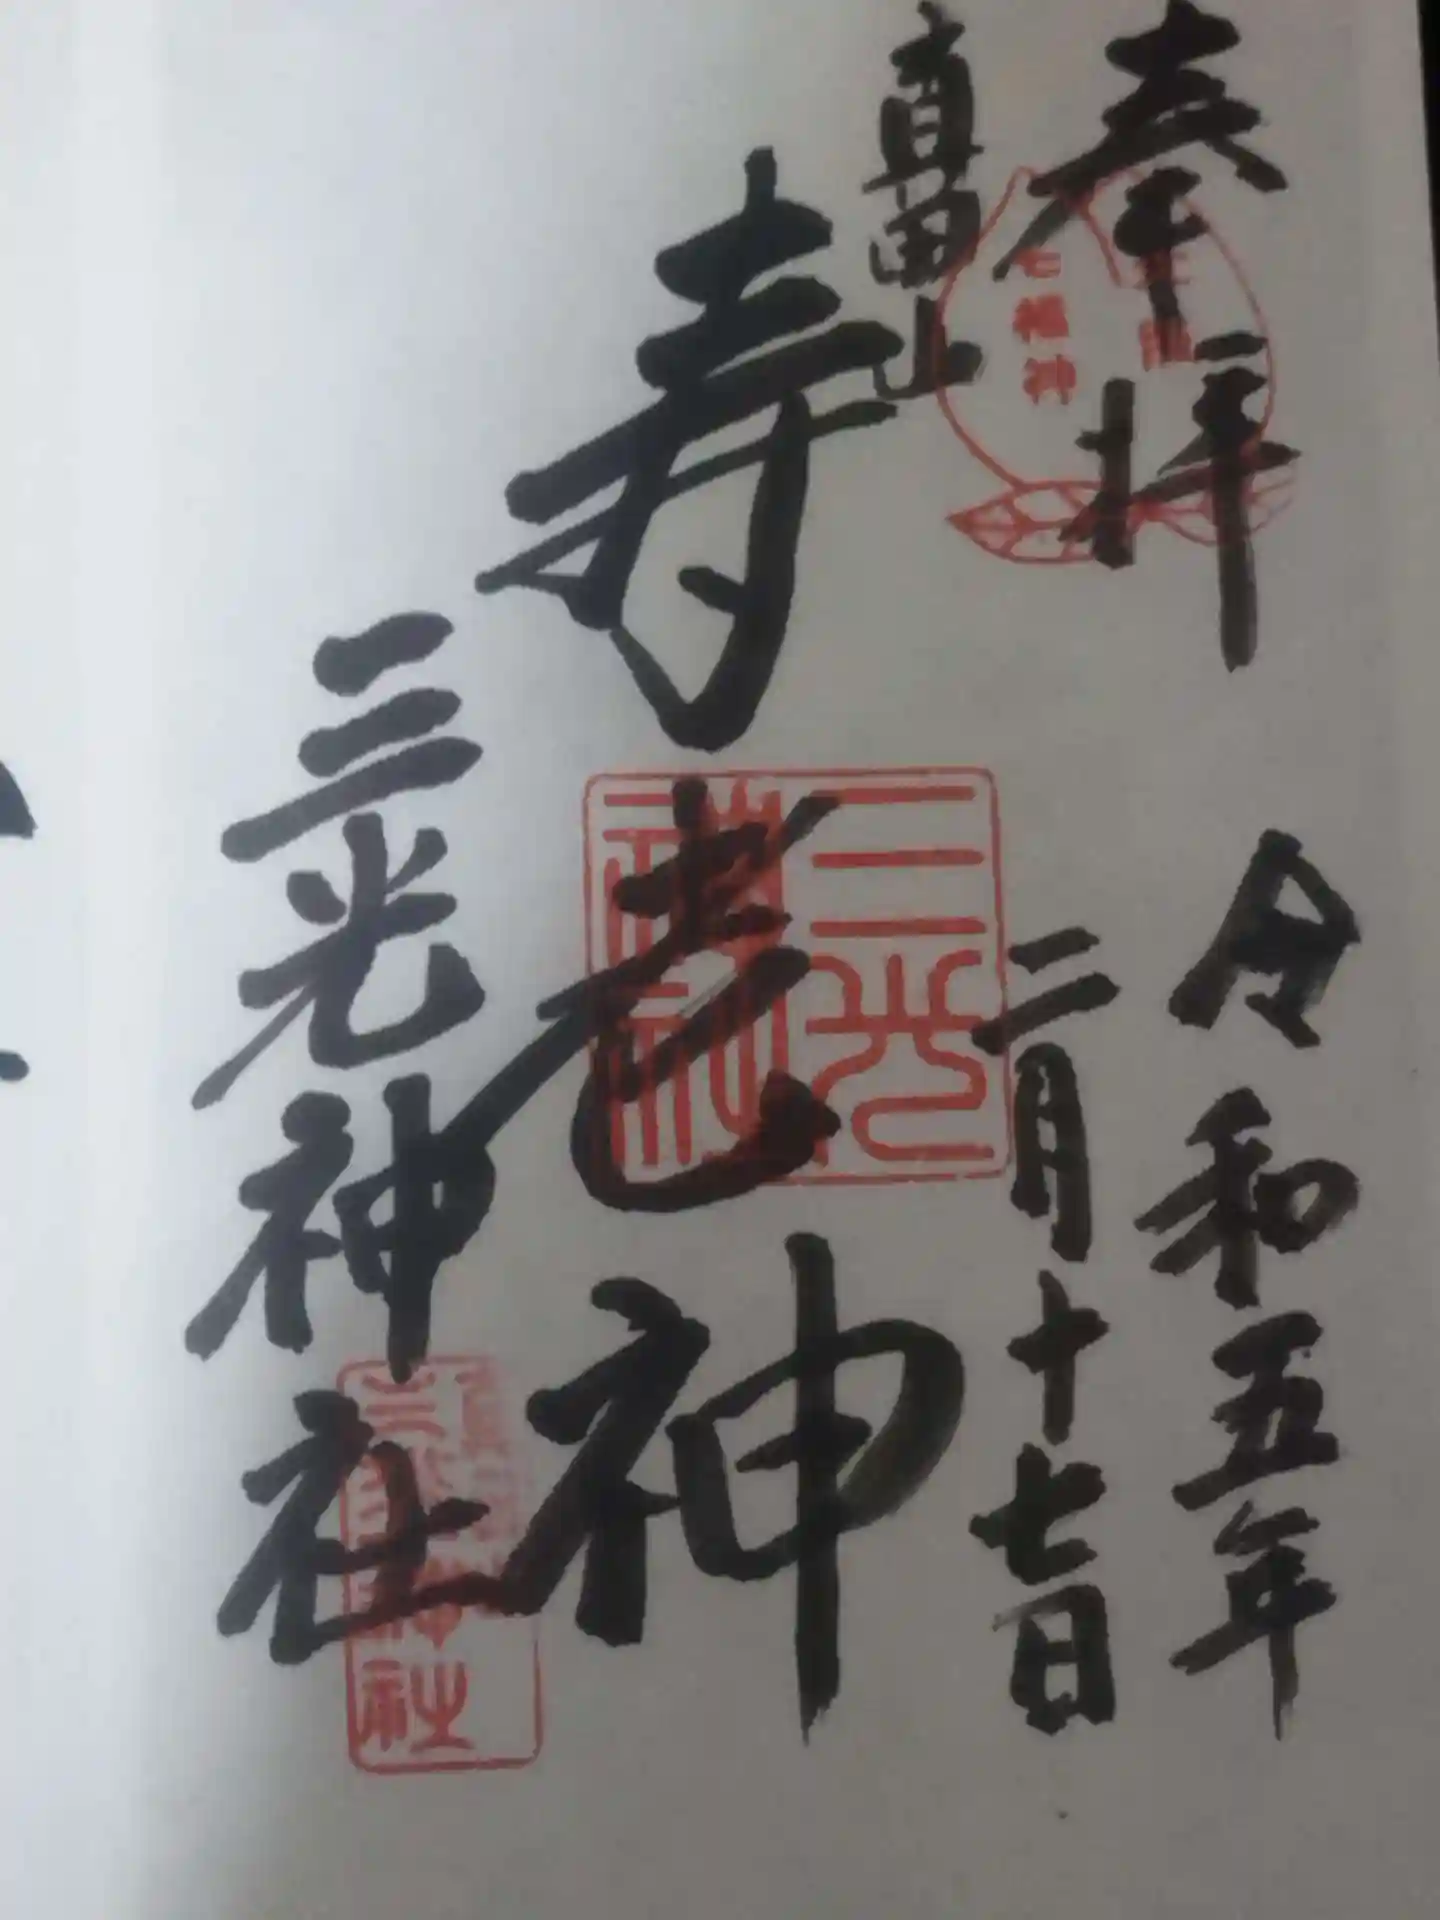 奉拝
真田山
七福神
寿老神
三光神社
令和五年
二月十七日
三光神社
神社